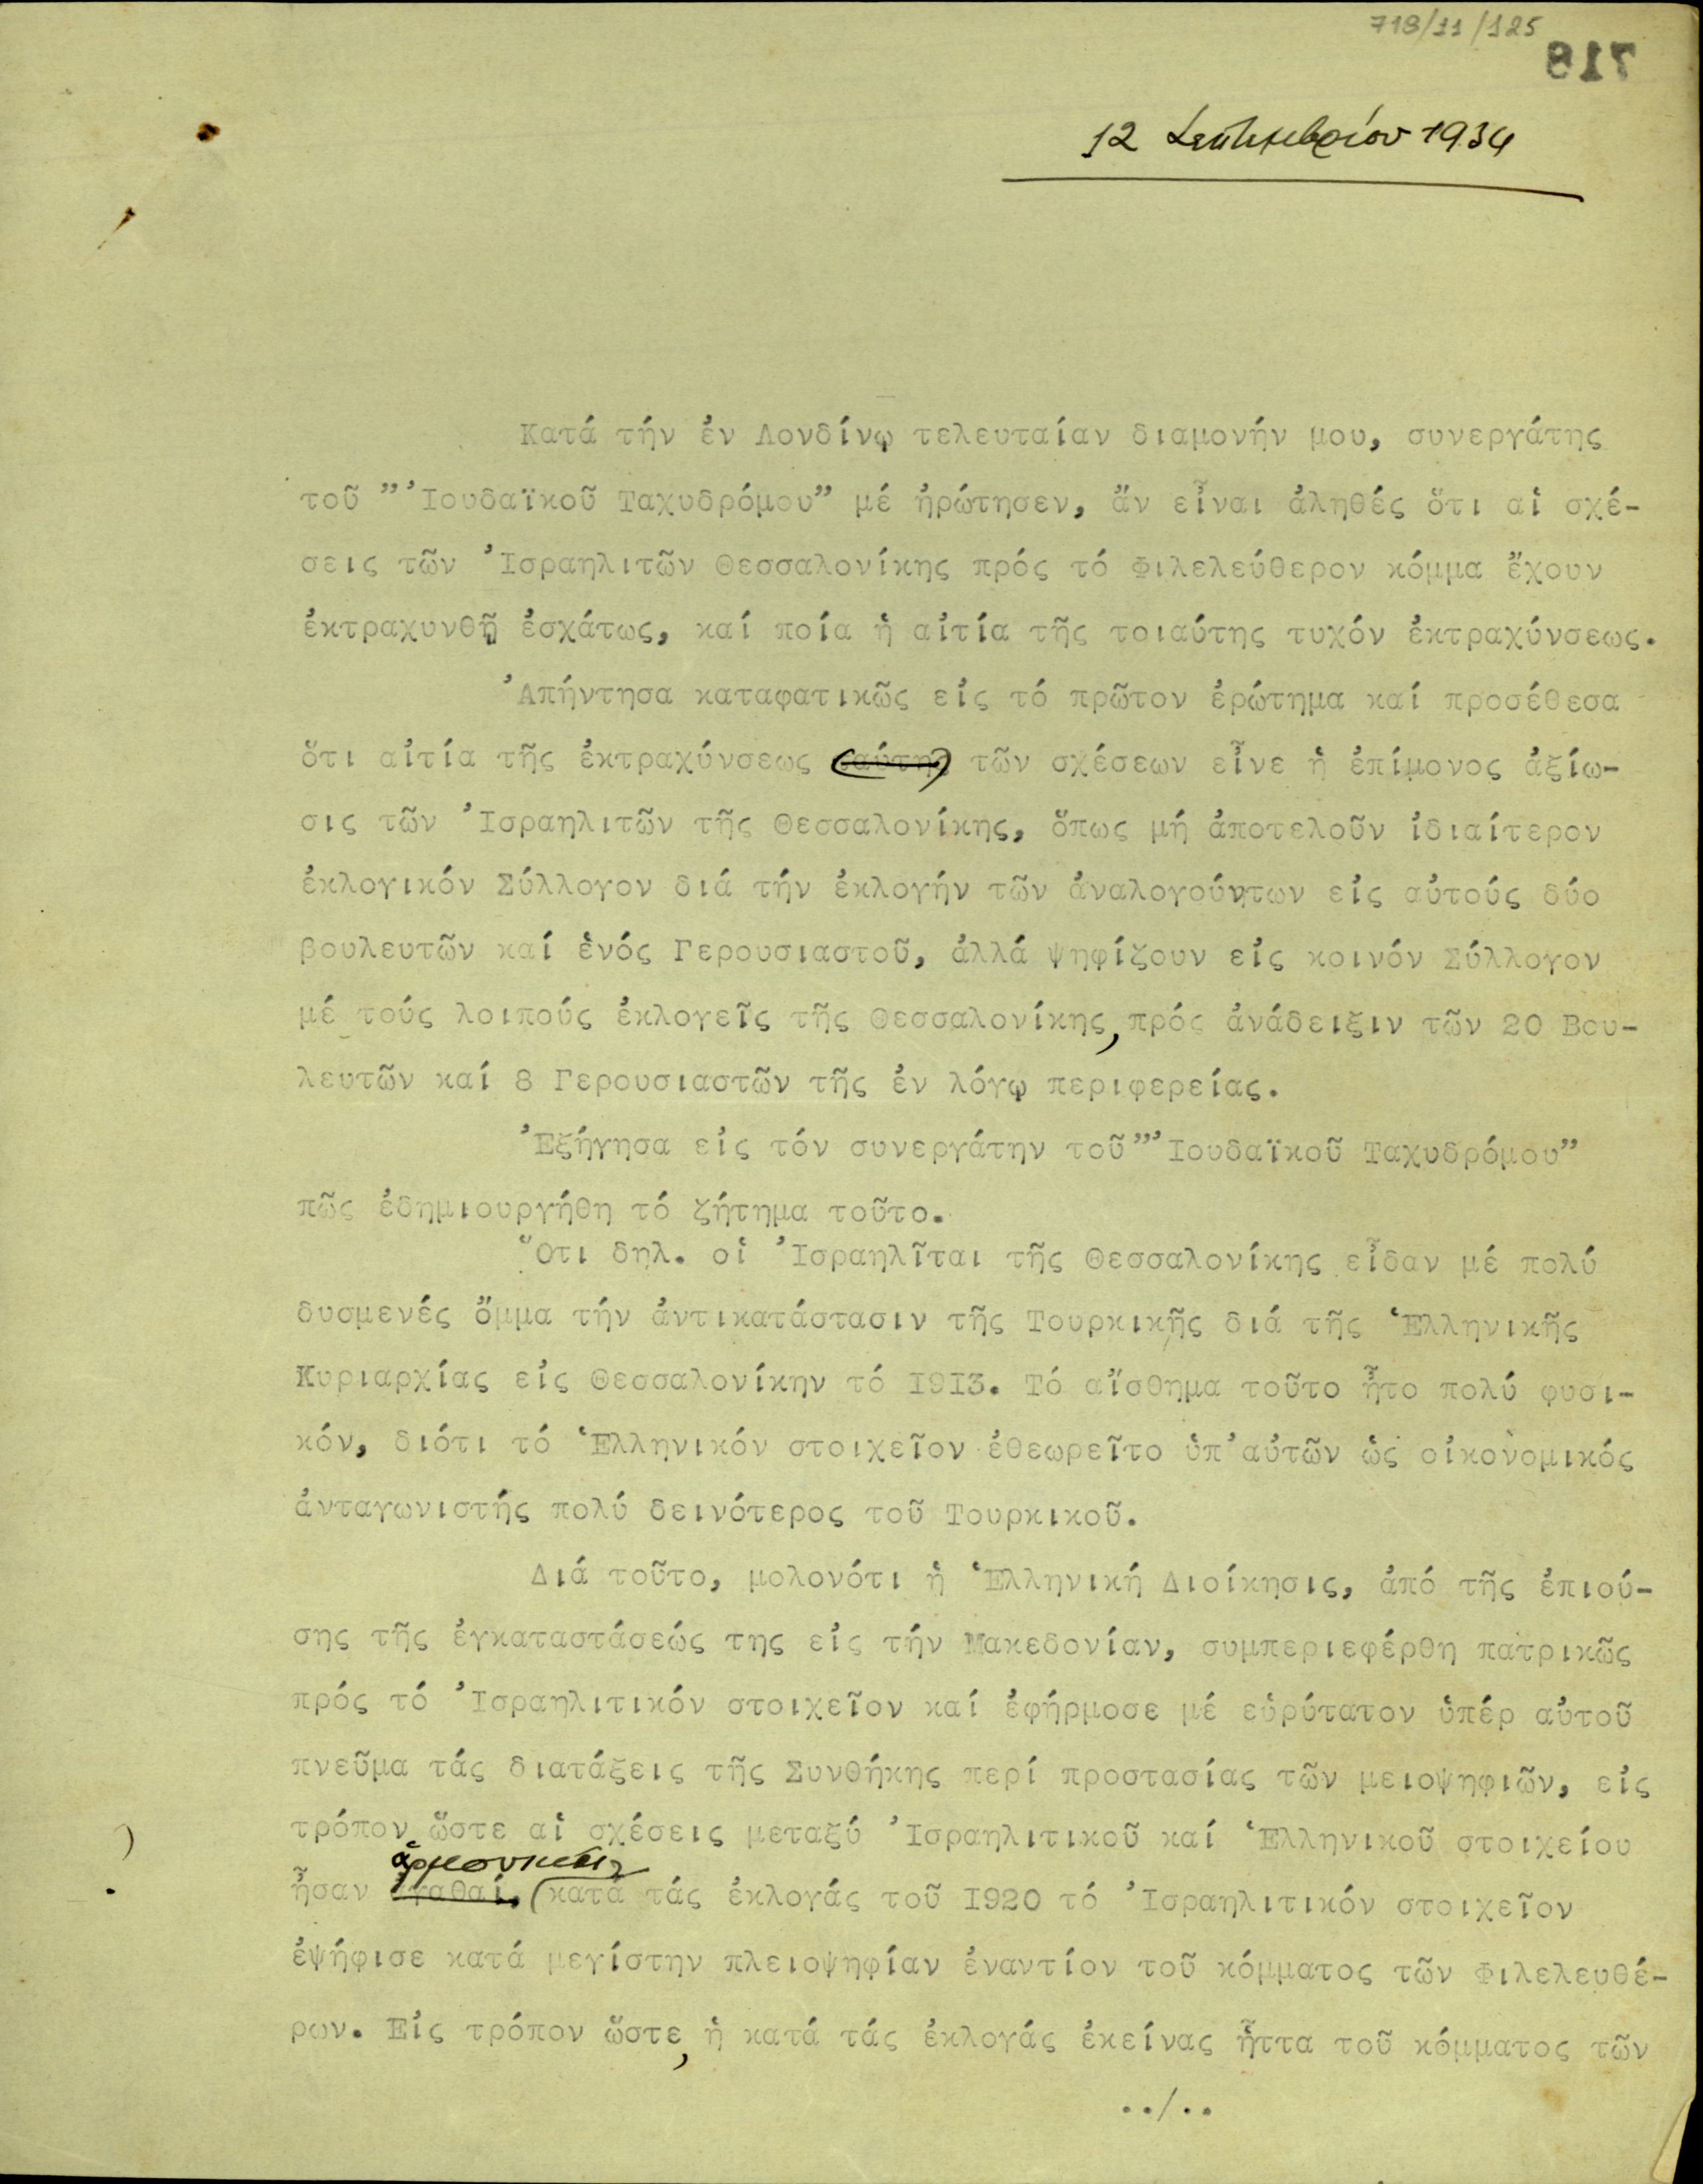 718/11/125
718
12 Σεπτεμβρίου 1934
Κατά τήν ἐν Λονδίνῳ τελευταίαν διαμονήν μου, συνεργάτης
τοῦ "'Ιουδαϊκοῦ Ταχυδρόμου" μέ ἠρώτησεν, ἄν εἶναι ἀληθές ὅτι αἱ σχέ-
σεις τῶν 'Ισραηλιτῶν Θεσσαλονίκης πρός τό Φιλελεύθερον κόμμα ἔχουν
ἐκτραχυνθῆ ἐσχάτως, καί ποία ἡ αἰτία τῆς τοιαύτης τυχόν ἐκτραχύνσεως.
'Απήντησα καταφατικῶς εἰς τό πρῶτον ἐρώτημα καί προσέθεσα
ὅτι αἰτία τῆς ἐκτραχύνσεως ταύτης τῶν σχέσεων εἶνε ἡ ἐπίμονος ἀξίω-
σις τῶν 'Ισραηλιτῶν τῆς Θεσσαλονίκης, ὅπως μή ἀποτελοῦν ἰδιαίτερον
ἐκλογικόν Σύλλογον διά τήν ἐκλογήν τῶν ἀναλογούντων εἰς αὐτούς δύο
βουλευτῶν καί ἑνός Γερουσιαστοῦ, ἀλλά ψηφίζουν εἰς κοινόν Σύλλογον
μέ τούς λοιπούς ἐκλογεῖς τῆς Θεσσαλονίκης, πρός ἀνάδειξιν τῶν 20 Βου-
λευτῶν καί 8 Γερουσιαστῶν τῆς ἐν λόγῳ περιφερείας.
'Εξήγησα εἰς τόν συνεργάτην τοῦ "'Ιουδαϊκοῦ Ταχυδρόμου"
πῶς ἐδημιουργήθη τό ζήτημα τοῦτο.
Ὅτι δηλ. οἱ 'Ισραηλῖται τῆς Θεσσαλονίκης εἶδαν μέ πολύ
δυσμενές ὄμμα τήν ἀντικατάστασιν τῆς Τουρκικῆς διά τῆς Ἑλληνικῆς
Κυριαρχίας εἰς Θεσσαλονίκην τό 1913. Τό αἴσθημα τοῦτο ἦτο πολύ φυσι-
κόν, διότι τό Ἑλληνικόν στοιχεῖον ἐθεωρεῖτο ὑπ'αὐτῶν ὡς οἰκονομικός
ἀνταγωνιστής πολύ δεινότερος τοῦ Τουρκικοῦ.
Διά τοῦτο, μολονότι ἡ Ἑλληνική Διοίκησις, ἀπό τῆς ἐπιού-
σης τῆς ἐγκαταστάσεώς της εἰς τήν Μακεδονίαν, συμπεριεφέρθη πατρικῶς
πρός τό 'Ισραηλιτικόν στοιχεῖον καί ἐφήρμοσε μέ εὐρύτατον ὑπέρ αὐτοῦ
πνεῦμα τάς διατάξεις τῆς Συνθήκης περί προστασίας τῶν μειοψηφιῶν, εἰς
τρόπον ὥστε αἱ σχέσεις μεταξύ 'Ισραηλιτικοῦ καί Ἑλληνικοῦ στοιχείου
ἁρμονικαί,
ἦσαν ἀγαθαί, (κατά τάς ἐκλογάς τοῦ 1920 τό 'Ισραηλιτικόν στοιχεῖον
ἐψήφισε κατά μεγίστην πλειοψηφίαν ἐναντίον τοῦ κόμματος τῶν Φιλελευθέ-
ρων. Εἰς τρόπον ὥστε, ἡ κατά τάς ἐκλογάς ἐκείνας ἧττα τοῦ κόμματος τῶν
../..